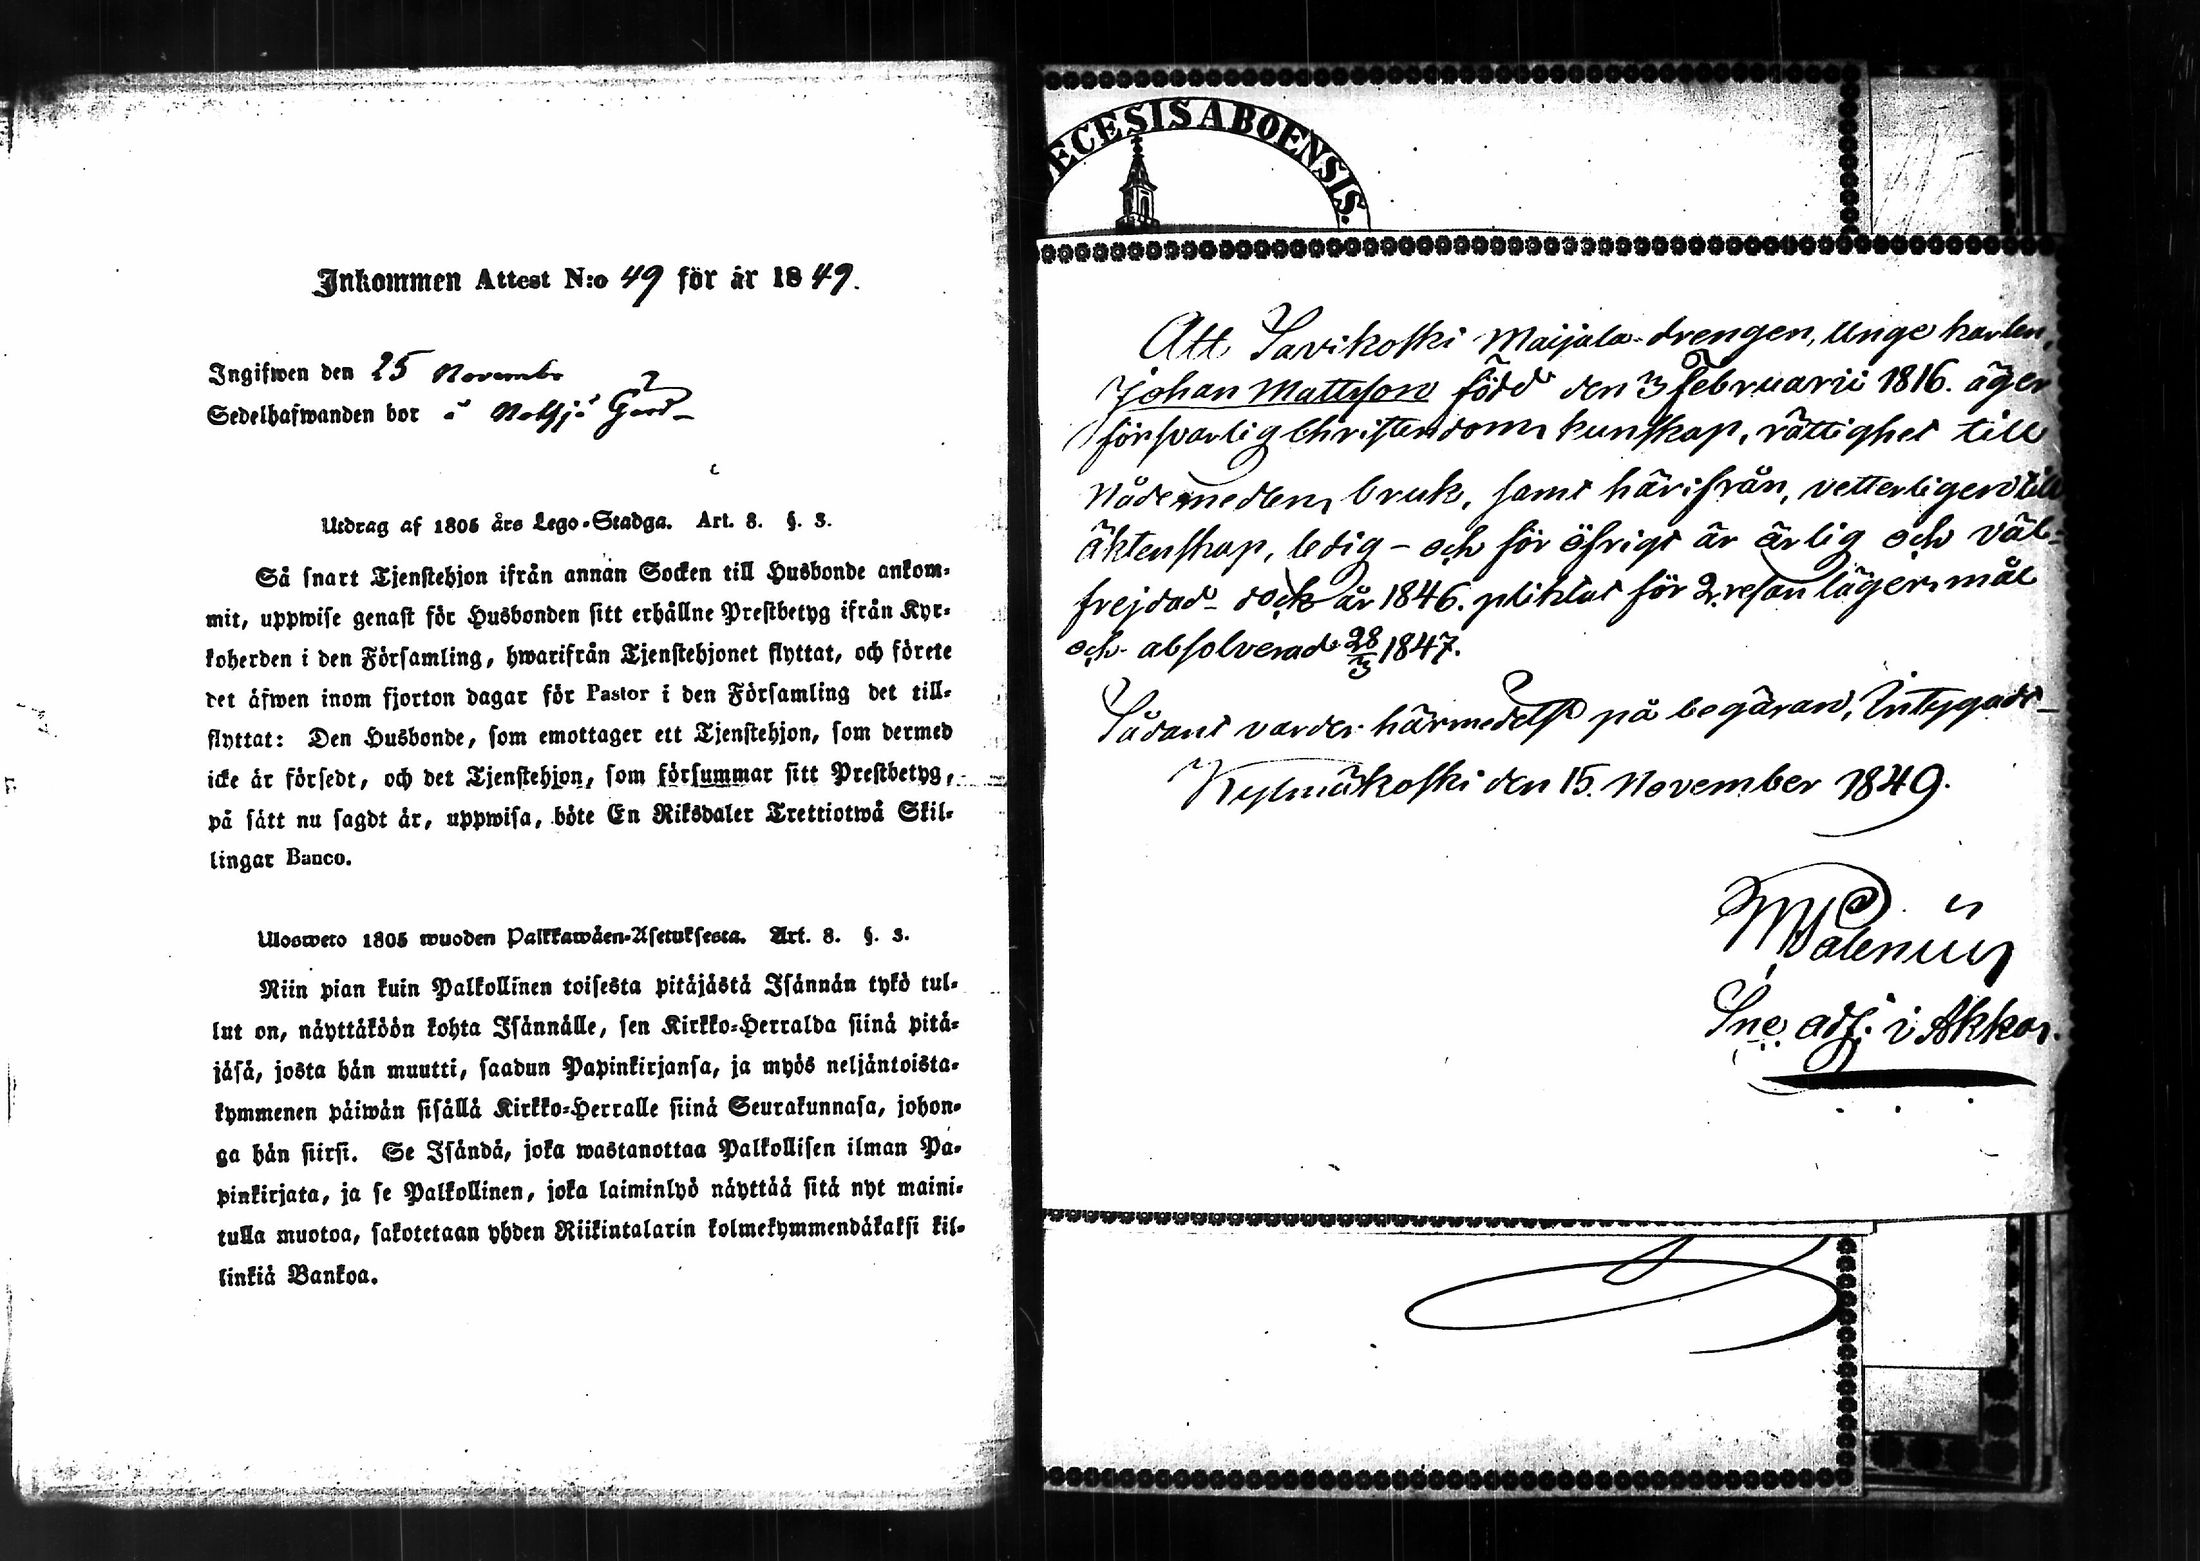 Inkommen Attest N:o 49 för år 1849.
Ingifwen den 25 Novembr
Sedelhafwanden bor å Gård
Utdrag af 1805 års Lego-Stadga. Art. 8. §. 3.
Så snart Tjenstehjon ifrån annan Socken till Husbonde ankom-
mit, uppwise genast för Husbonden sitt erhållne Prestbetyg ifrån Kyr-
koherden i den Församling, hwarifrån Tjenstehjonet flyttat, och förete
det äfwen inom fjorton dagar för Pastor i den Församling det till-
flyttat: Den Husbonde, som emottager ett Tjenstehjon, som dermed
icke är försedt, och det Tjenstehjon, som försummar sitt Prestbetyg,
på sätt nu sagdt är, uppwisa, böte En Riksdaler Trettiotwå Skil-
lingar Banco.
Ulosweto 1805 wuoden Palkkawäen-Asetuksesta. Art. 8. §. 3.
Niin pian kuin Palkollinen toisesta pitäjästä Isännän tykö tul-
lut on, näyttäköön kohta Isännälle, sen Kirkko-Herralda siinä pitä-
jäsä, josta hän muutti, saadun Papinkirjansa, ja myös neljäntoista-
kymmenen päiwän sisällä Kirkko-Herralle siinä Seurakunnasa, johon-
ga hän siirsi. Se Isändä, joka wastanottaa Palkollisen ilman Pa-
pinkirjata, ja se Palkollinen, joka laiminlyö näyttää sitä nyt maini-
tulla muotoa, sakotetaan yhden Riikintalarin kolmekymmendäkaksi kil-
linkiä Bankoa.
ECESIS ABOENSIS.
Att Savikoski Maijala-drengen, Unge karlen,
Johan Mattsson född den 3 Februarii 1816. äger
försvarlig Christendoms kunskap, rättighet till
Nådemedlens bruk, samt härifrån, vetterligen till
äktenskap, ledig – och för öfrigt är ärlig och väl-
frejdad – dock år 1846. pliktat för 2. resan lägersmål
och absolverad 28/3 1847.
Sådant varder härmedelst på begäran, Intygadt –
Kylmäkoski den 15. November 1849.
Palenius
Sne adj. i Akkas.